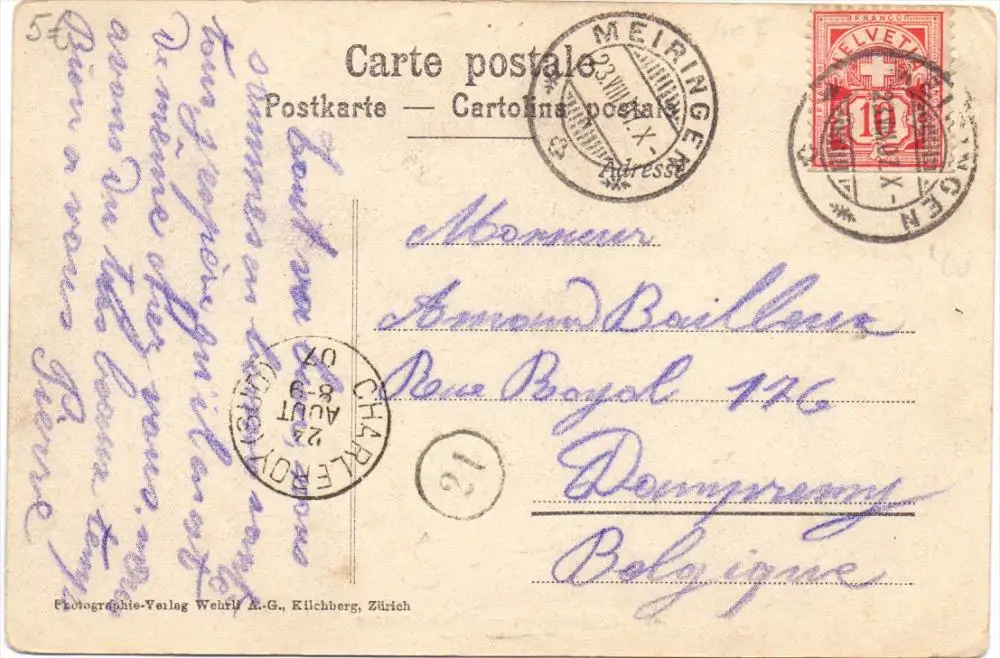 5
Carte postale
Postkarte — Cartolina postale
Adresse
MEIRINGEN
23.VIII.07.X-
FRANCO
HELVETIA
10
MEIRINGEN
X-
Monsieur
Armand Bailleux
Rue Royal 176
Dampremy
Belgique
CHARLEROY (SUD)
24
AOUT
8-9
07
21
tout va bien nous
sommes en bonne santé
tous j'espère qu'il en est
de même chez vous. nous
avons du très beau temps
Bien a vous Pierre
Photographie-Verlag Wehrli A.-G., Kilchberg, Zürich